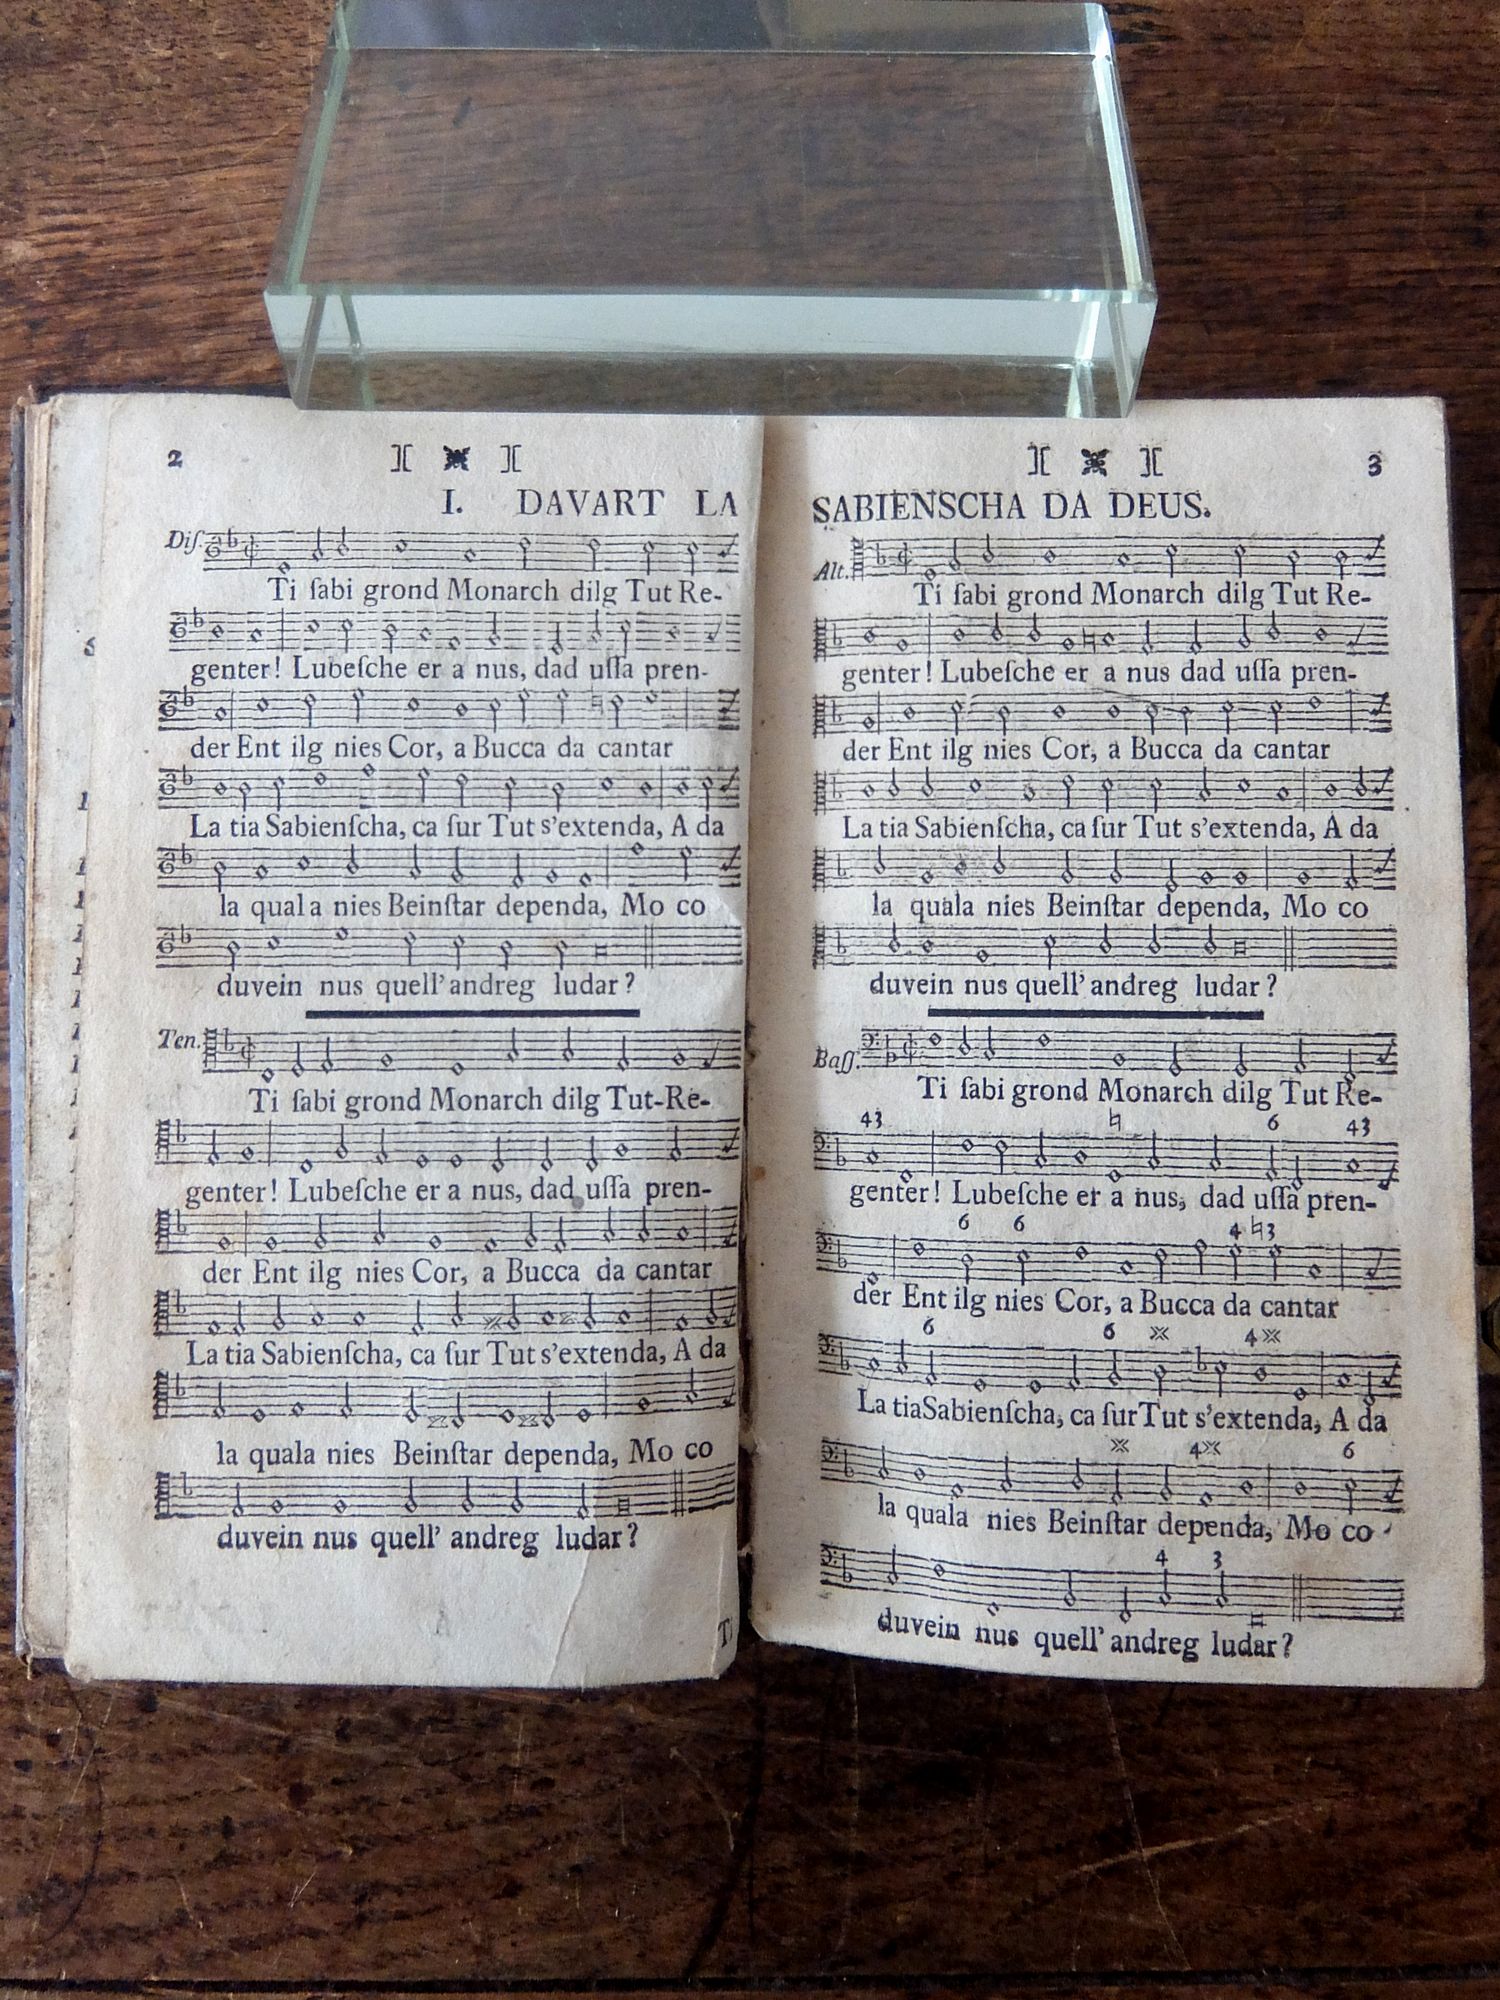 2 ][ ][
I. DAVART LA
Diſ.
Ti ſabi grond Monarch dilg Tut Re-
genter! Lubeſche er a nus, dad uſſa pren-
der Ent ilg nies Cor, a Bucca da cantar
La tia Sabienſcha, ca ſur Tut s'extenda, A da
la quala nies Beinſtar dependa, Mo co
duvein nus quell' andreg ludar?
Ten.
Ti ſabi grond Monarch dilg Tut-Re-
genter! Lubeſche er a nus, dad uſſa pren-
der Ent ilg nies Cor, a Bucca da cantar
La tia Sabienſcha, ca ſur Tut s'extenda, A da
la quala nies Beinſtar dependa, Mo co
duvein nus quell' andreg ludar?
][ ][ 3
SABIENSCHA DA DEUS.
Alt.
Ti ſabi grond Monarch dilg Tut Re-
genter! Lubeſche er a nus dad uſſa pren-
der Ent ilg nies Cor, a Bucca da cantar
La tia Sabienſcha, ca ſur Tut s'extenda, A da
la quala nies Beinſtar dependa, Mo co
duvein nus quell' andreg ludar?
Baſſ.
Ti ſabi grond Monarch dilg Tut Re-
43 ♮ 6 43
genter! Lubeſche er a nus, dad uſſa pren-
6 6 4 ♮3
der Ent ilg nies Cor, a Bucca da cantar
6 6 4
La tia Sabienſcha, ca ſur Tut s'extenda, A da
4 6
la quala nies Beinſtar dependa, Mo co
4 3
duvein nus quell' andreg ludar?